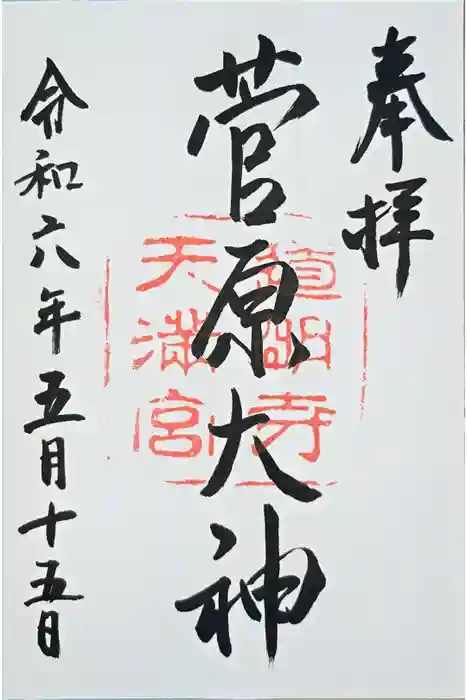 奉拝
菅原大神
道明寺
天満宮
令和六年五月十五日